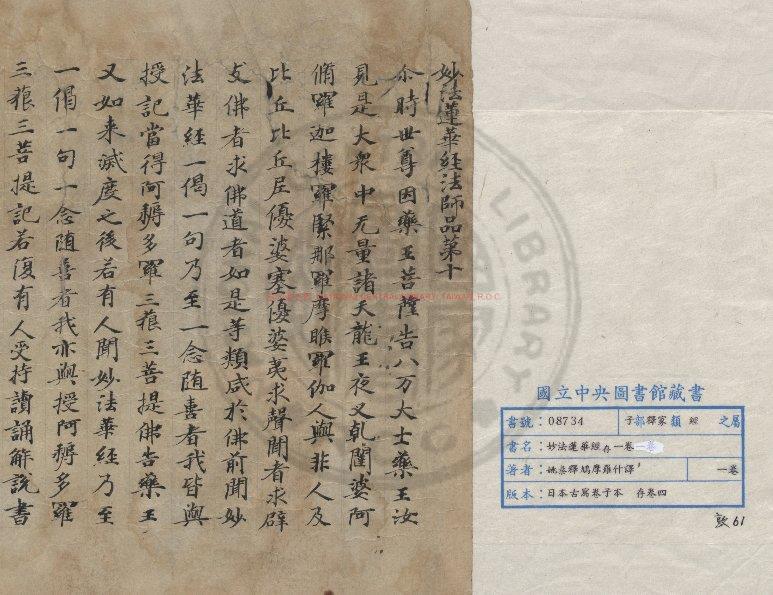 妙法蓮華經法師品第十
尒時世尊因藥王菩薩告八万大士藥王汝
見是大衆中无量諸天龍王夜叉乹闥婆阿
脩羅迦樓羅緊那羅摩睺羅伽人與非人及
比丘比丘尼優婆塞優婆夷求聲聞者求辟
支佛者求佛道者如是等類咸於佛前聞妙
法華經一偈一句乃至一念随喜者我皆與
授記當得阿耨多羅三藐三菩提佛告藥王
又如来滅度之後若有人聞妙法華經乃至
一偈一句一念随喜者我亦與授阿耨多羅
三藐三菩提記若復有人受持讀誦解說書
國立中央圖書館藏書
書號：08734 子部釋家類 經 之屬
書名：妙法蓮華經存一卷
著者：姚秦釋鳩摩羅什譯 一卷
版本：日本古寫卷子本 存卷四
敦61
CENTRAL LIBRARY, TAIWAN, R.O.C.
LIBRARY